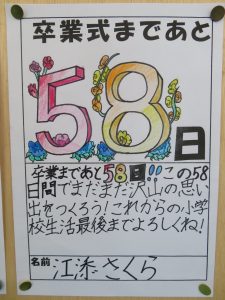 卒業式まであと
58日
卒業まであと58日!!この58
日間でまだまだ沢山の思い
出をつくろう!これからの小学
校生活最後までよろしくね!
名前 江添さくら